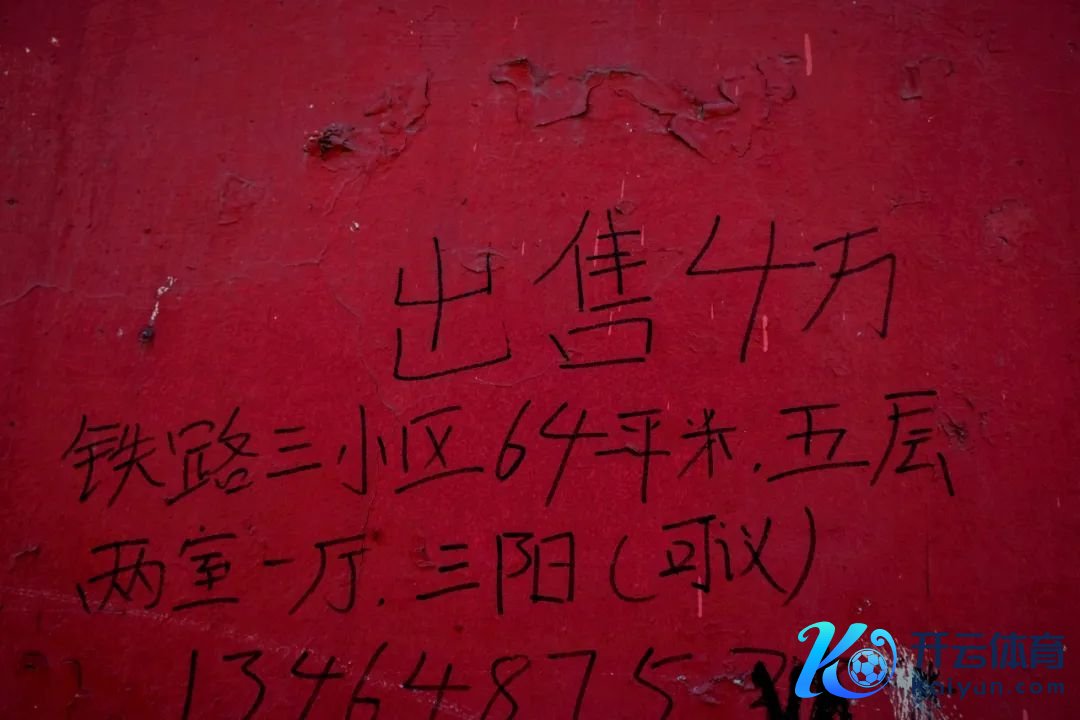 出售4万
铁路三小区64平米.五层
两室一厅.三阳(可议)
13464875
开云体育
kaiyun.com